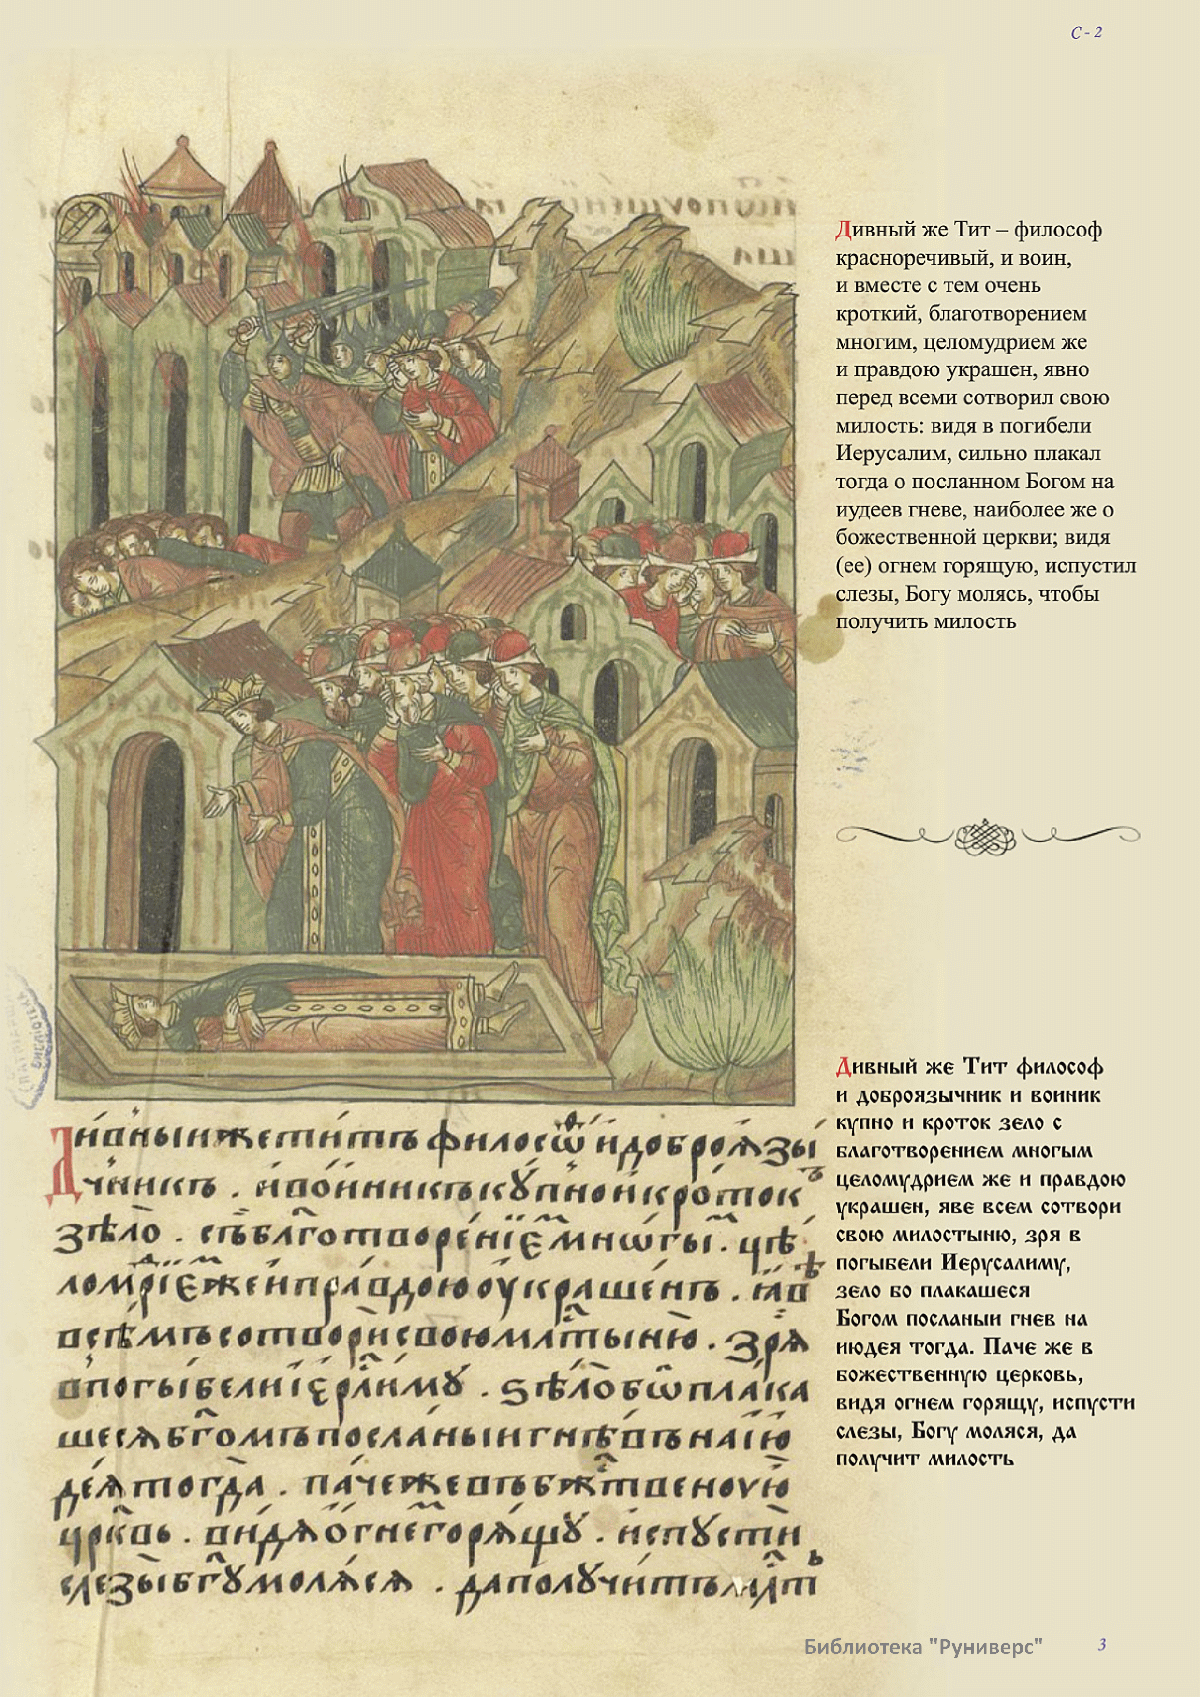 С - 2
Дивный же Тит – философ
красноречивый, и воин,
и вместе с тем очень
кроткий, благотворением
многим, целомудрием же
и правдою украшен, явно
перед всеми сотворил свою
милость: видя в погибели
Иерусалим, сильно плакал
тогда о посланном Богом на
иудеев гневе, наиболее же о
божественной церкви; видя
(ее) огнем горящую, испустил
слезы, Богу молясь, чтобы
получить милость
Дивный же Тит философ
и доброязычник и воиник
купно и кроток зело с
благотворением многым
целомудрием же и правдою
украшен, яве всем сотвори
свою милостыню, зря в
погыбели Иерусалиму,
зело бо плакашеся
Богом посланыи гнев на
июдея тогда. Паче же в
божественную церковь,
видя огнем горящу, испусти
слезы, Богу моляся, да
получит милость
Дивныижетитъфилосѿидоброязы
чникъ . ивоиникъкупноикротокъ
зѣло . съблготворенїемнѡгы . цѣ
ломрїежеиправдоюоукрашенъ . ꙗвѣ
всѣмъсотворисвоюмлтыню . зря
впогыбелиїерлиму . ѕѣлобѡплака
шесябгомъпосланыигнѣвънаїю
деятогда . пачежевъбжтвеноую
црквь . видяогнемгорящу . испусти
слезыбгумоляся . даполучитъмлть
Библиотека "Руниверс"
3